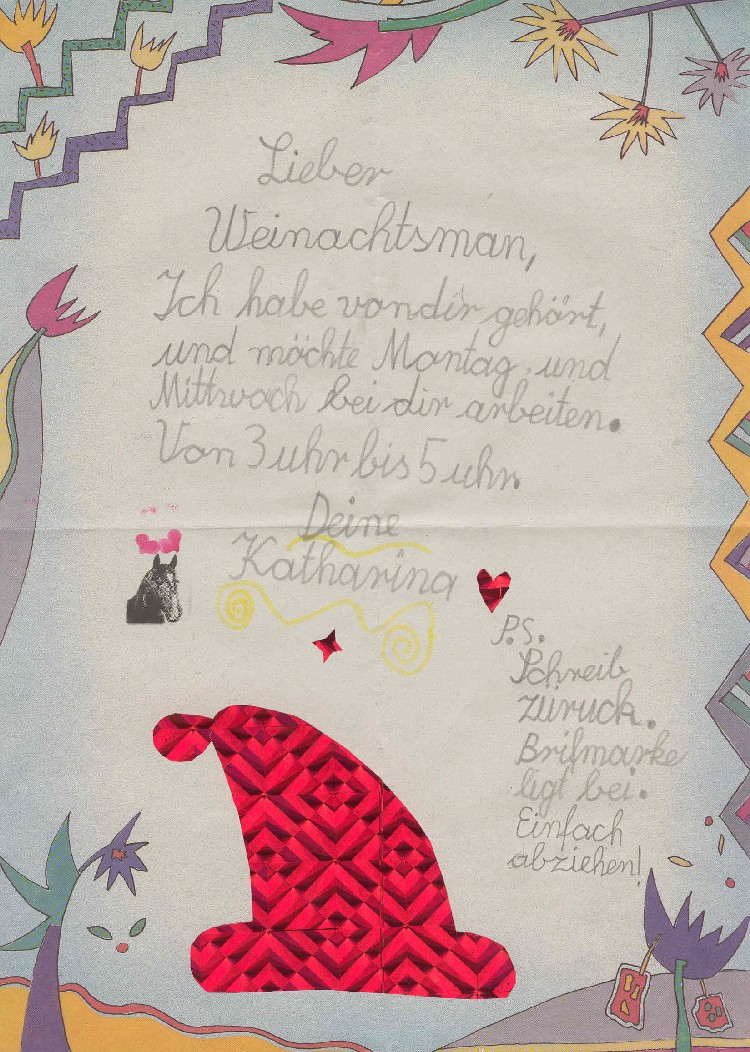 Lieber
Weinachtsman,
Ich habe von dir gehört,
und möchte Montag und
Mittwoch bei dir arbeiten.
Von 3 uhr bis 5 uhr.
Deine
Katharina
P.S.
Schreib
züruck.
Brifmarke
ligt bei.
Einfach
abziehen!